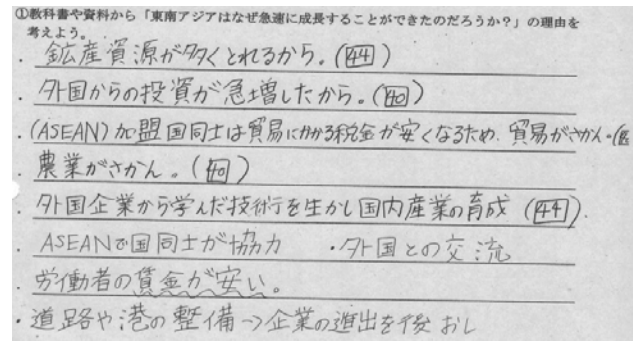 ①教科書や資料から「東南アジアはなぜ急速に成長することができたのだろうか？」の理由を
考えよう。
・鉱産資源が多くとれるから。(44)
・外国からの投資が急増したから。(40)
・(ASEAN)加盟国同士は貿易にかかる税金が安くなるため、貿易がさかん。(
・農業がさかん。(40)
・外国企業から学んだ技術を生かし国内産業の育成 (44).
・ASEANで国同士が協力 ・外国との交流
・労働者の賃金が安い。
・道路や港の整備→企業の進出を後おし